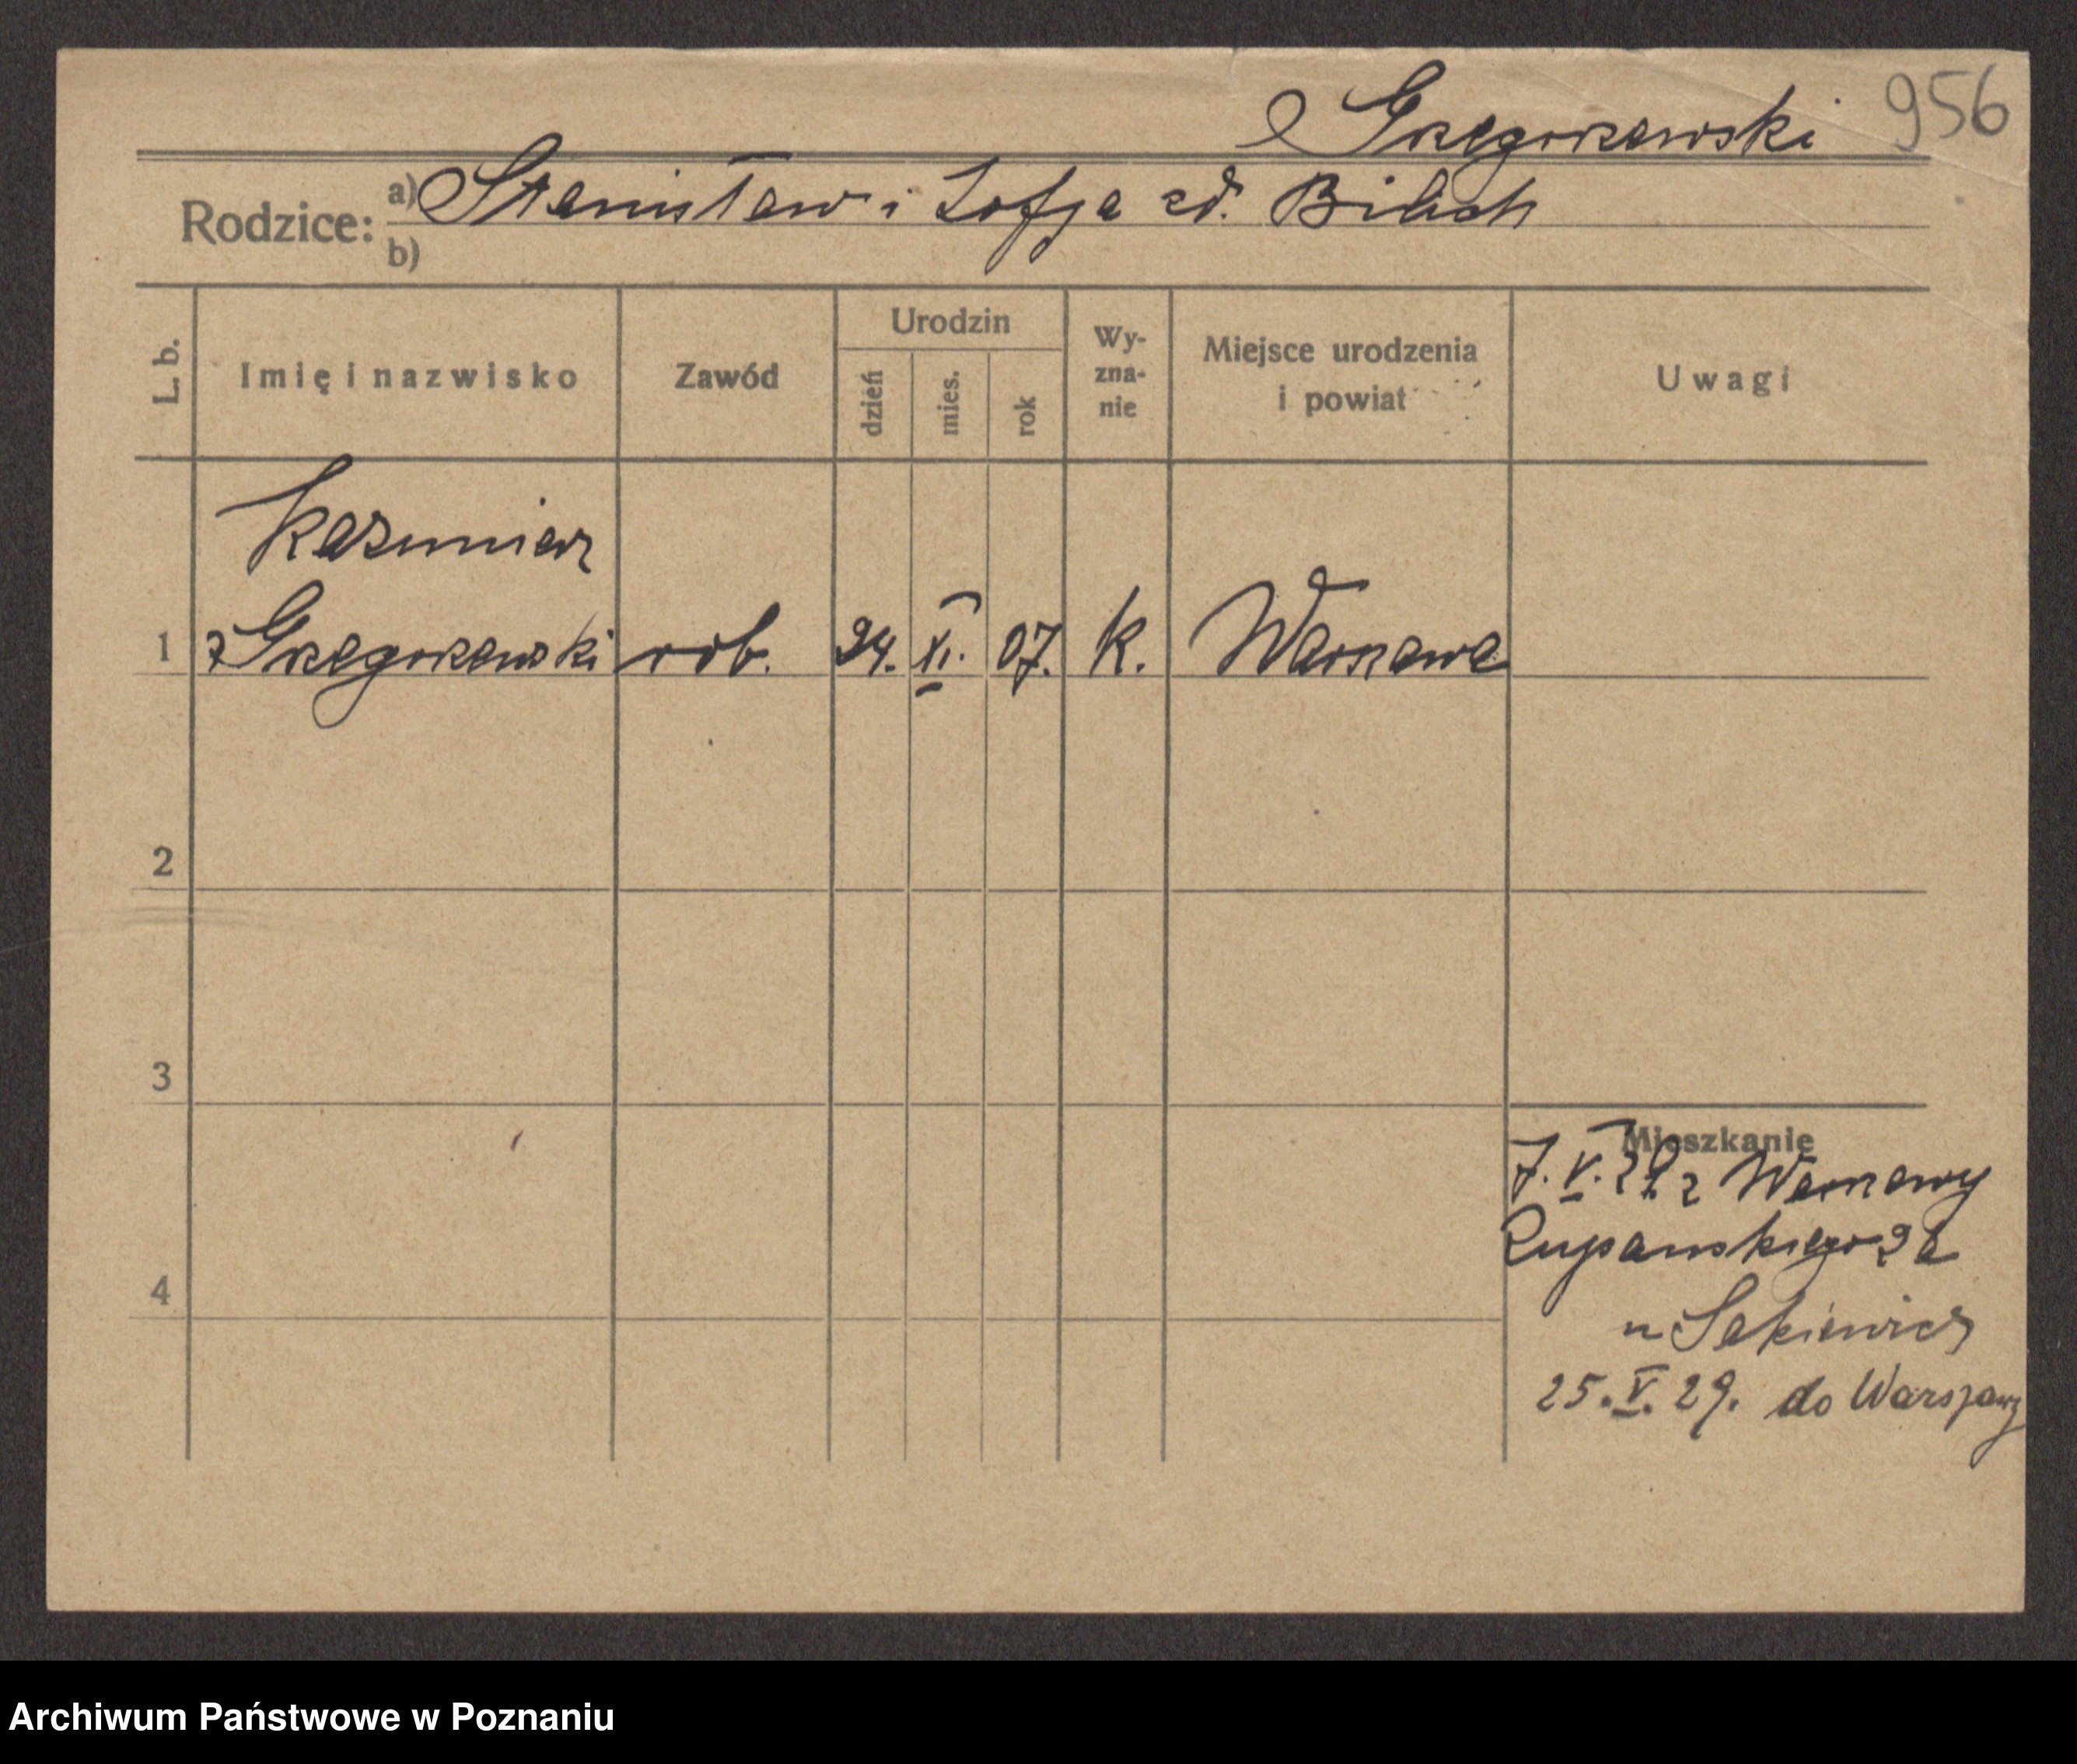 Grzegorzewski 956
Rodzice: a) Stanisław i Zofja zd.
b)
L. b.
Imię i nazwisko
Zawód
Urodzin
dzień
mies.
rok
Wy-
zna-
nie
Miejsce urodzenia
i powiat
Uwagi
Kazimierz
1 Grzegorzewski rob. 24. XI. 07. k. Warszawa
2
3
4
Mieszkanie
7. V. 29 z Warszawy
u
25. V. 29. do Warszawy
Archiwum Państwowe w Poznaniu